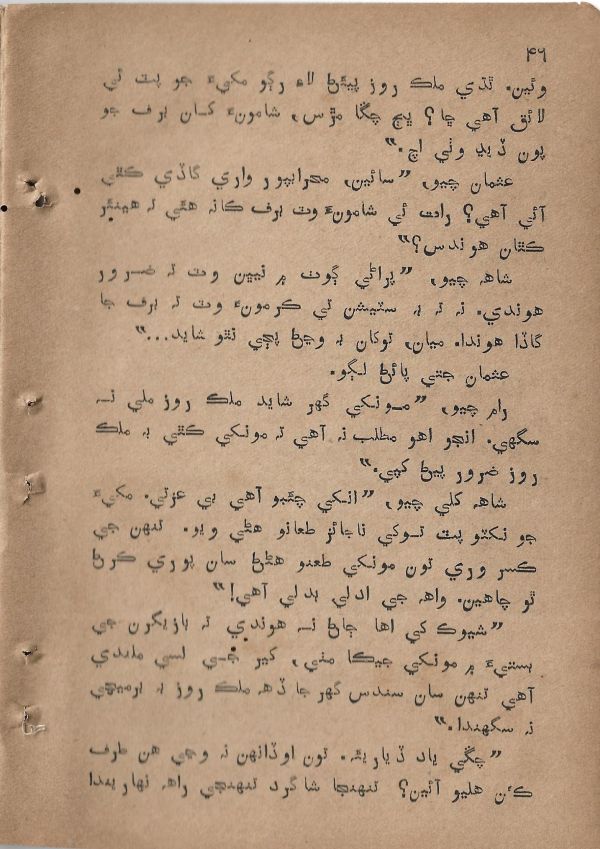 ۴۶
وئين. ٿڌي ملڪ روز پيئڻ لاءِ رڳو مکيءَ جو پٽ ئي
لائق آهي ڇا؟ ڀڄ چڱا مڙس، شامونءَ کان برف جو
پون ڏيڍ وٺي اچ.”
عثمان چيو، ”سائين، محرابپور واري گاڏي ڪٿي
آئي آهي؟ رات ئي شامونءَ وٽ برف ڪانہ هئي تہ هينئر
ڪٿان هوندس؟”
شاھ چيو، ”پراڻي ڳوٺ ۾ نيڀن وٽ تہ ضرور
هوندي. نہ تہ بہ سٽيشن تي ڪرمونءَ وٽ تہ برف جا
گاڏا هوندا. ميان، توکان بہ وڃڻ پڄي نٿو شايد...”
عثمان جتي پائڻ لڳو.
رام چيو، ”مونکي گهر شايد ملڪ روز ملي نہ
سگهي. انجو اهو مطلب نہ آهي تہ مونکي ڪٿي بہ ملڪ
روز ضرور پيڻ کپي.”
شاھ کلي چيو، ”انکي چئبو آهي بي عزتي. مکيءَ
جو نڪٽو پٽ توکي ناجائز طعانو هڻي ويو. تنهن جي
ڪسر وري تون مونکي طعنو هڻڻ سان پوري ڪرڻ
ٿو چاهين. واھ جي ادلي بدلي آهي!”
”شيوڪ کي اها ڄاڻ نہ هوندي تہ بازيگرن جي
بستيءَ ۾ مونکي جيڪا مني، کير جي لسي ملندي
آهي تنهن سان سندس گهر جا ڏھ ملڪ روز بہ برميچي
نہ سگهندا.”
”چڱي ياد ڏياريئہ. تون اوڏانهن نہ وڃي هن طرف
ڪئن هليو آئين؟ تنهنجا شاگرد تنهنجي راھ نهاريندا